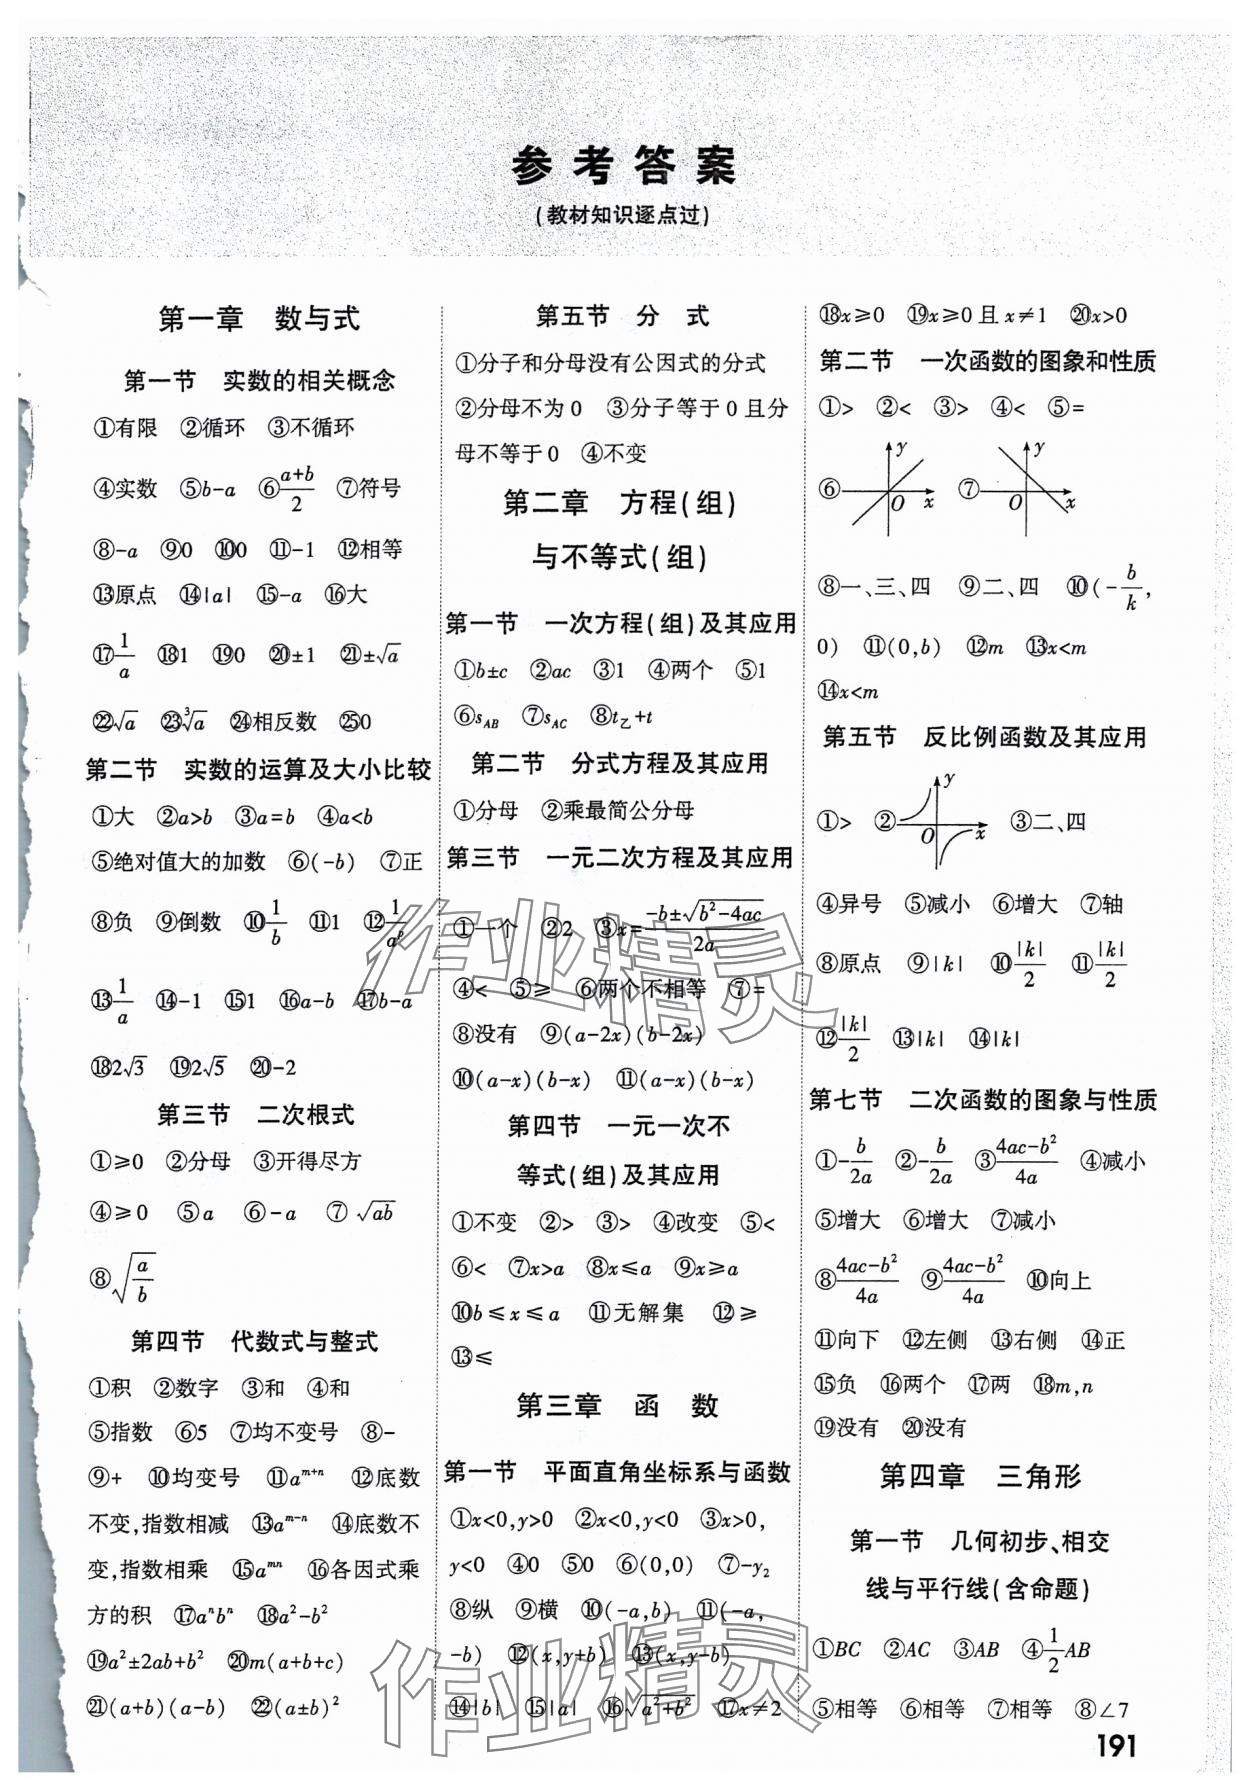 参考答案
(教材知识逐点过)
第一章 数与式
第一节 实数的相关概念
①有限 ②循环 ③不循环
④实数 ⑤b-a ⑥(a+b)/2 ⑦符号
⑧-a ⑨0 ⑩0 ⑪-1 ⑫相等
⑬原点 ⑭|a| ⑮-a ⑯大
⑰1/a ⑱1 ⑲0 ⑳±1 ㉑±√a
㉒√a ㉓∛a ㉔相反数 ㉕0
第二节 实数的运算及大小比较
①大 ②a>b ③a=b ④a<b
⑤绝对值大的加数 ⑥(-b) ⑦正
⑧负 ⑨倒数 ⑩1/b ⑪1 ⑫1/aᵖ
⑬1/a ⑭-1 ⑮1 ⑯a-b ⑰b-a
⑱2√3 ⑲2√5 ⑳-2
第三节 二次根式
①≥0 ②分母 ③开得尽方
④≥0 ⑤a ⑥-a ⑦√ab
⑧√(a/b)
第四节 代数式与整式
①积 ②数字 ③和 ④和
⑤指数 ⑥5 ⑦均不变号 ⑧-
⑨+ ⑩均变号 ⑪aᵐ⁺ⁿ ⑫底数
不变,指数相减 ⑬aᵐ⁻ⁿ ⑭底数不
变,指数相乘 ⑮aᵐⁿ ⑯各因式乘
方的积 ⑰aⁿbⁿ ⑱a²-b²
⑲a²±2ab+b² ⑳m(a+b+c)
㉑(a+b)(a-b) ㉒(a±b)²
第五节 分 式
①分子和分母没有公因式的分式
②分母不为0 ③分子等于0且分
母不等于0 ④不变
第二章 方程(组)
与不等式(组)
第一节 一次方程(组)及其应用
①b±c ②ac ③1 ④两个 ⑤1
⑥s_AB ⑦s_AC ⑧t_乙+t
第二节 分式方程及其应用
①分母 ②乘最简公分母
第三节 一元二次方程及其应用
①一个 ②2 ③x=(-b±√(b²-4ac))/2a
④< ⑤≥ ⑥两个不相等 ⑦=
⑧没有 ⑨(a-2x)(b-2x)
⑩(a-x)(b-x) ⑪(a-x)(b-x)
第四节 一元一次不
等式(组)及其应用
①不变 ②> ③> ④改变 ⑤<
⑥< ⑦x>a ⑧x≤a ⑨x≥a
⑩b≤x≤a ⑪无解集 ⑫≥
⑬≤
第三章 函 数
第一节 平面直角坐标系与函数
①x<0,y>0 ②x<0,y<0 ③x>0,
y<0 ④0 ⑤0 ⑥(0,0) ⑦-y₂
⑧纵 ⑨横 ⑩(-a,b) ⑪(-a,
-b) ⑫(x,y+b) ⑬(x,y-b)
⑭|b| ⑮|a| ⑯√(a²+b²) ⑰x≠2
⑱x≥0 ⑲x≥0且x≠1 ⑳x>0
第二节 一次函数的图象和性质
①> ②< ③> ④< ⑤=
⑥ y O x ⑦ y O x
⑧一、三、四 ⑨二、四 ⑩(-b/k,
0) ⑪(0,b) ⑫m ⑬x<m
⑭x<m
第五节 反比例函数及其应用
①> ② y O x ③二、四
④异号 ⑤减小 ⑥增大 ⑦轴
⑧原点 ⑨|k| ⑩|k|/2 ⑪|k|/2
⑫|k|/2 ⑬|k| ⑭|k|
第七节 二次函数的图象与性质
①-b/2a ②-b/2a ③(4ac-b²)/4a ④减小
⑤增大 ⑥增大 ⑦减小
⑧(4ac-b²)/4a ⑨(4ac-b²)/4a ⑩向上
⑪向下 ⑫左侧 ⑬右侧 ⑭正
⑮负 ⑯两个 ⑰两 ⑱m,n
⑲没有 ⑳没有
第四章 三角形
第一节 几何初步、相交
线与平行线(含命题)
①BC ②AC ③AB ④1/2AB
⑤相等 ⑥相等 ⑦相等 ⑧∠7
191
作业精灵
作业精灵